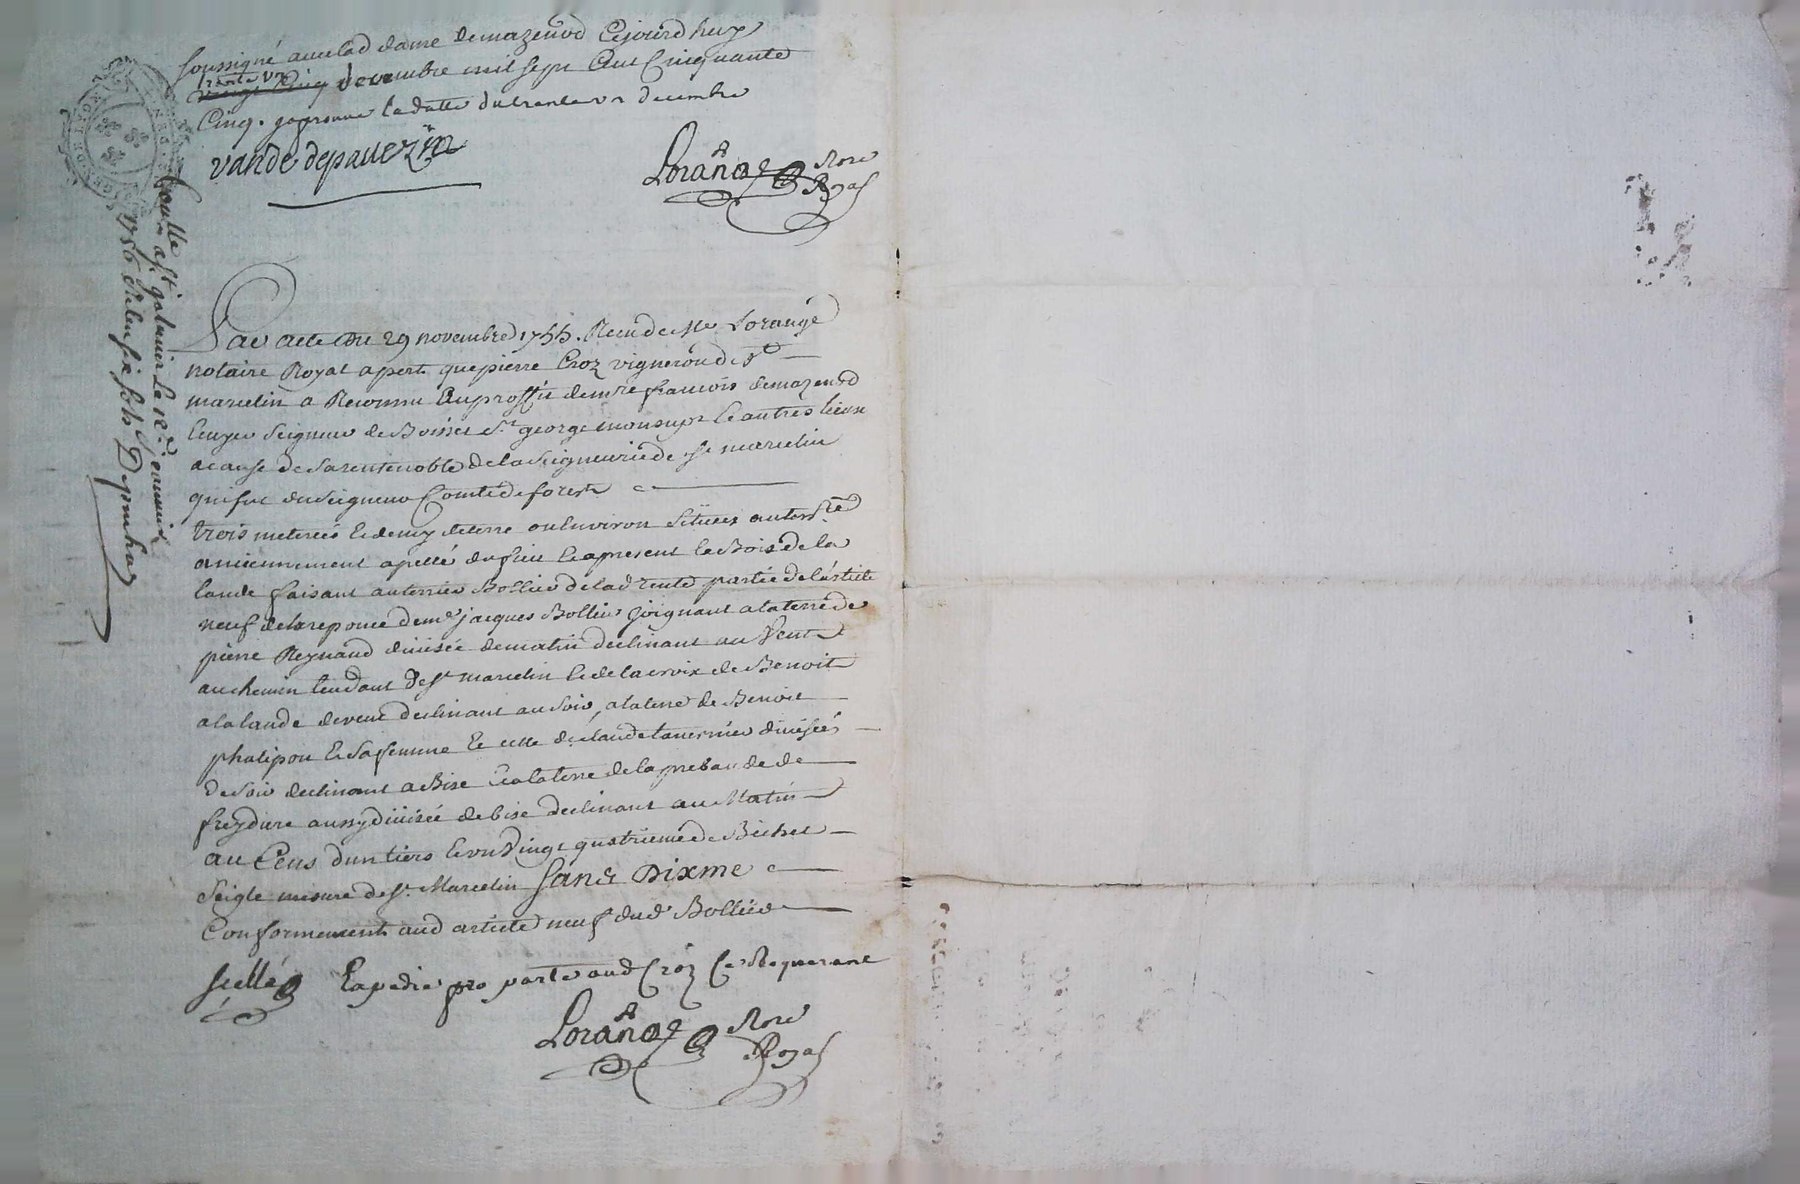 soussigné avec lad dame demazenod Cejourd huy
trente un
vingt Cinq decembre mil sept Cent Cinquante
Cinq. la datte du trente un decembre
vande depauezin
Lorange Nore
Royal
Controllé a st galmier Le 12e janvier
1756 Reçu six sols Depinhac
Par acte du 29 novembre 1755. Receu de Me Lorange
notaire Royal apert que pierre Croz vigneron de St
marcelin a Reconnu au proffit de mre francois demazenod
Ecuyer Seigneur de Boisset St george monsupt & autres lieux
a cause de sa rente noble de la Seigneurie de St marcelin
qui fut du Seigneur Comte de forests
trois meterées & demy de terre ou Environ Situées au terre
anciennement apellé du & apresent le Bois de la
lande faisant au terrier Bollieu de lad rente partie de l'article
neuf de la reponce de me jacques Bollieu joignant a la terre de
pierre Reynaud divisée de matin declinant au Vent
au chemin tendant de St marcelin & de la croix de Benoit
a la lande de vent declinant au soir, a la terre de Benoit
phalipon & sa femme & celle de claude tavernier divisées
de soir declinant a Bise & a la terre de la prebande de
freydure aussy divisée de bise declinant au Matin
au Cens d'un tiers & un vingt quatrieme de Bichet
Seigle mesure de St Marcelin Sans Dixme
Conformement aud article neuf dud Bollieu
scellé Expedié pro parte aud Croz Ce Requerant
Lorange Nore
Royal